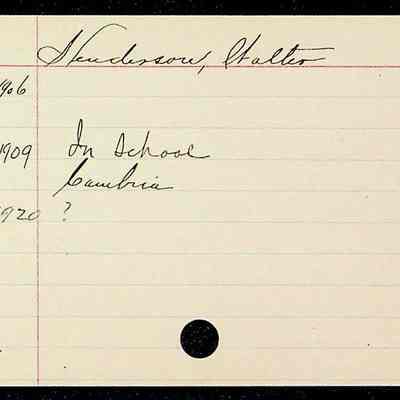 Henderson, Walter
1906
1909 In school
Cambria
1920 ?